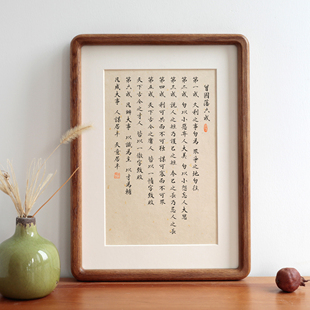 曾國藩六戒
第一戒 久利之事勿為 眾爭之地勿往
第二戒 勿以小惡棄人大美 勿以小怨忘人大恩
第三戒 說人之短乃護己之短 夸己之長乃忌人之長
第四戒 利可共而不可獨 謀可寡而不可眾
第五戒 天下古今之庸人 皆以一惰字致敗
天下古今之才人 皆以一傲字致敗
第六戒 凡辦大事 以識為主 以才為輔
凡成大事 人謀居半 天意居半